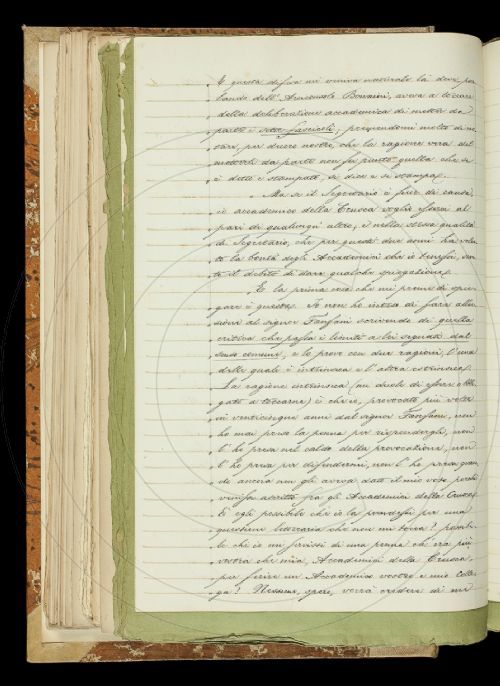 " E questa difesa mi veniva naturale là dove, par
" lando dell' Arciconsolo Bonaini, aveva a toccare
" della deliberazione accademica di metter da
" parte i sette fascicoli; premendomi molto di no
" tare, per dovere nostro, che la ragione vera del
" metterli da parte non fu punto quella che si
" è detto e stampato, si dice e si stampa.
" Ma se il Segretario è fuor di causa,
" io accademico della Crusca voglio essere al
" pari di qualunque altro; e nella stessa qualità
" di Segretario, che per questi due anni ha volu
" to la bontà degli Accademici che io tenessi, sen
" to il debito di dare qualche spiegazione.
" E la prima cosa che mi preme di spie
" gare è questa. Io non ho inteso di fare allu
" sioni al signor Fanfani scrivendo di quella
" critica che passa i limiti a lei segnati dal
" senso comune; e lo provo con due ragioni, l'una
" delle quali è intrinseca e l'altra estrinseca.
" La ragione intrinseca (mi duole di essere obbli
" gato a toccarne) è che io, provocato più volte
" in venticinque anni dal signor Fanfani, non
" ho mai preso la penna per rispondergli, non
" l'ho presa nel caldo della provocazione, non
" l'ho presa per difendermi, non l'ho presa quan
" do ancora non gli aveva dato il mio voto perchè
" venisse ascritto fra gli Accademici della Crusca.
" È egli possibile che io la prendessi per una
" questione letteraria che non mi tocca? possibi
" le che io mi servissi di una penna ch'era più
" vostra che mia, Accademici della Crusca,
" per ferire un Accademico vostro e mio Colle
" ga? Nessuno, spero, vorrà credere di me